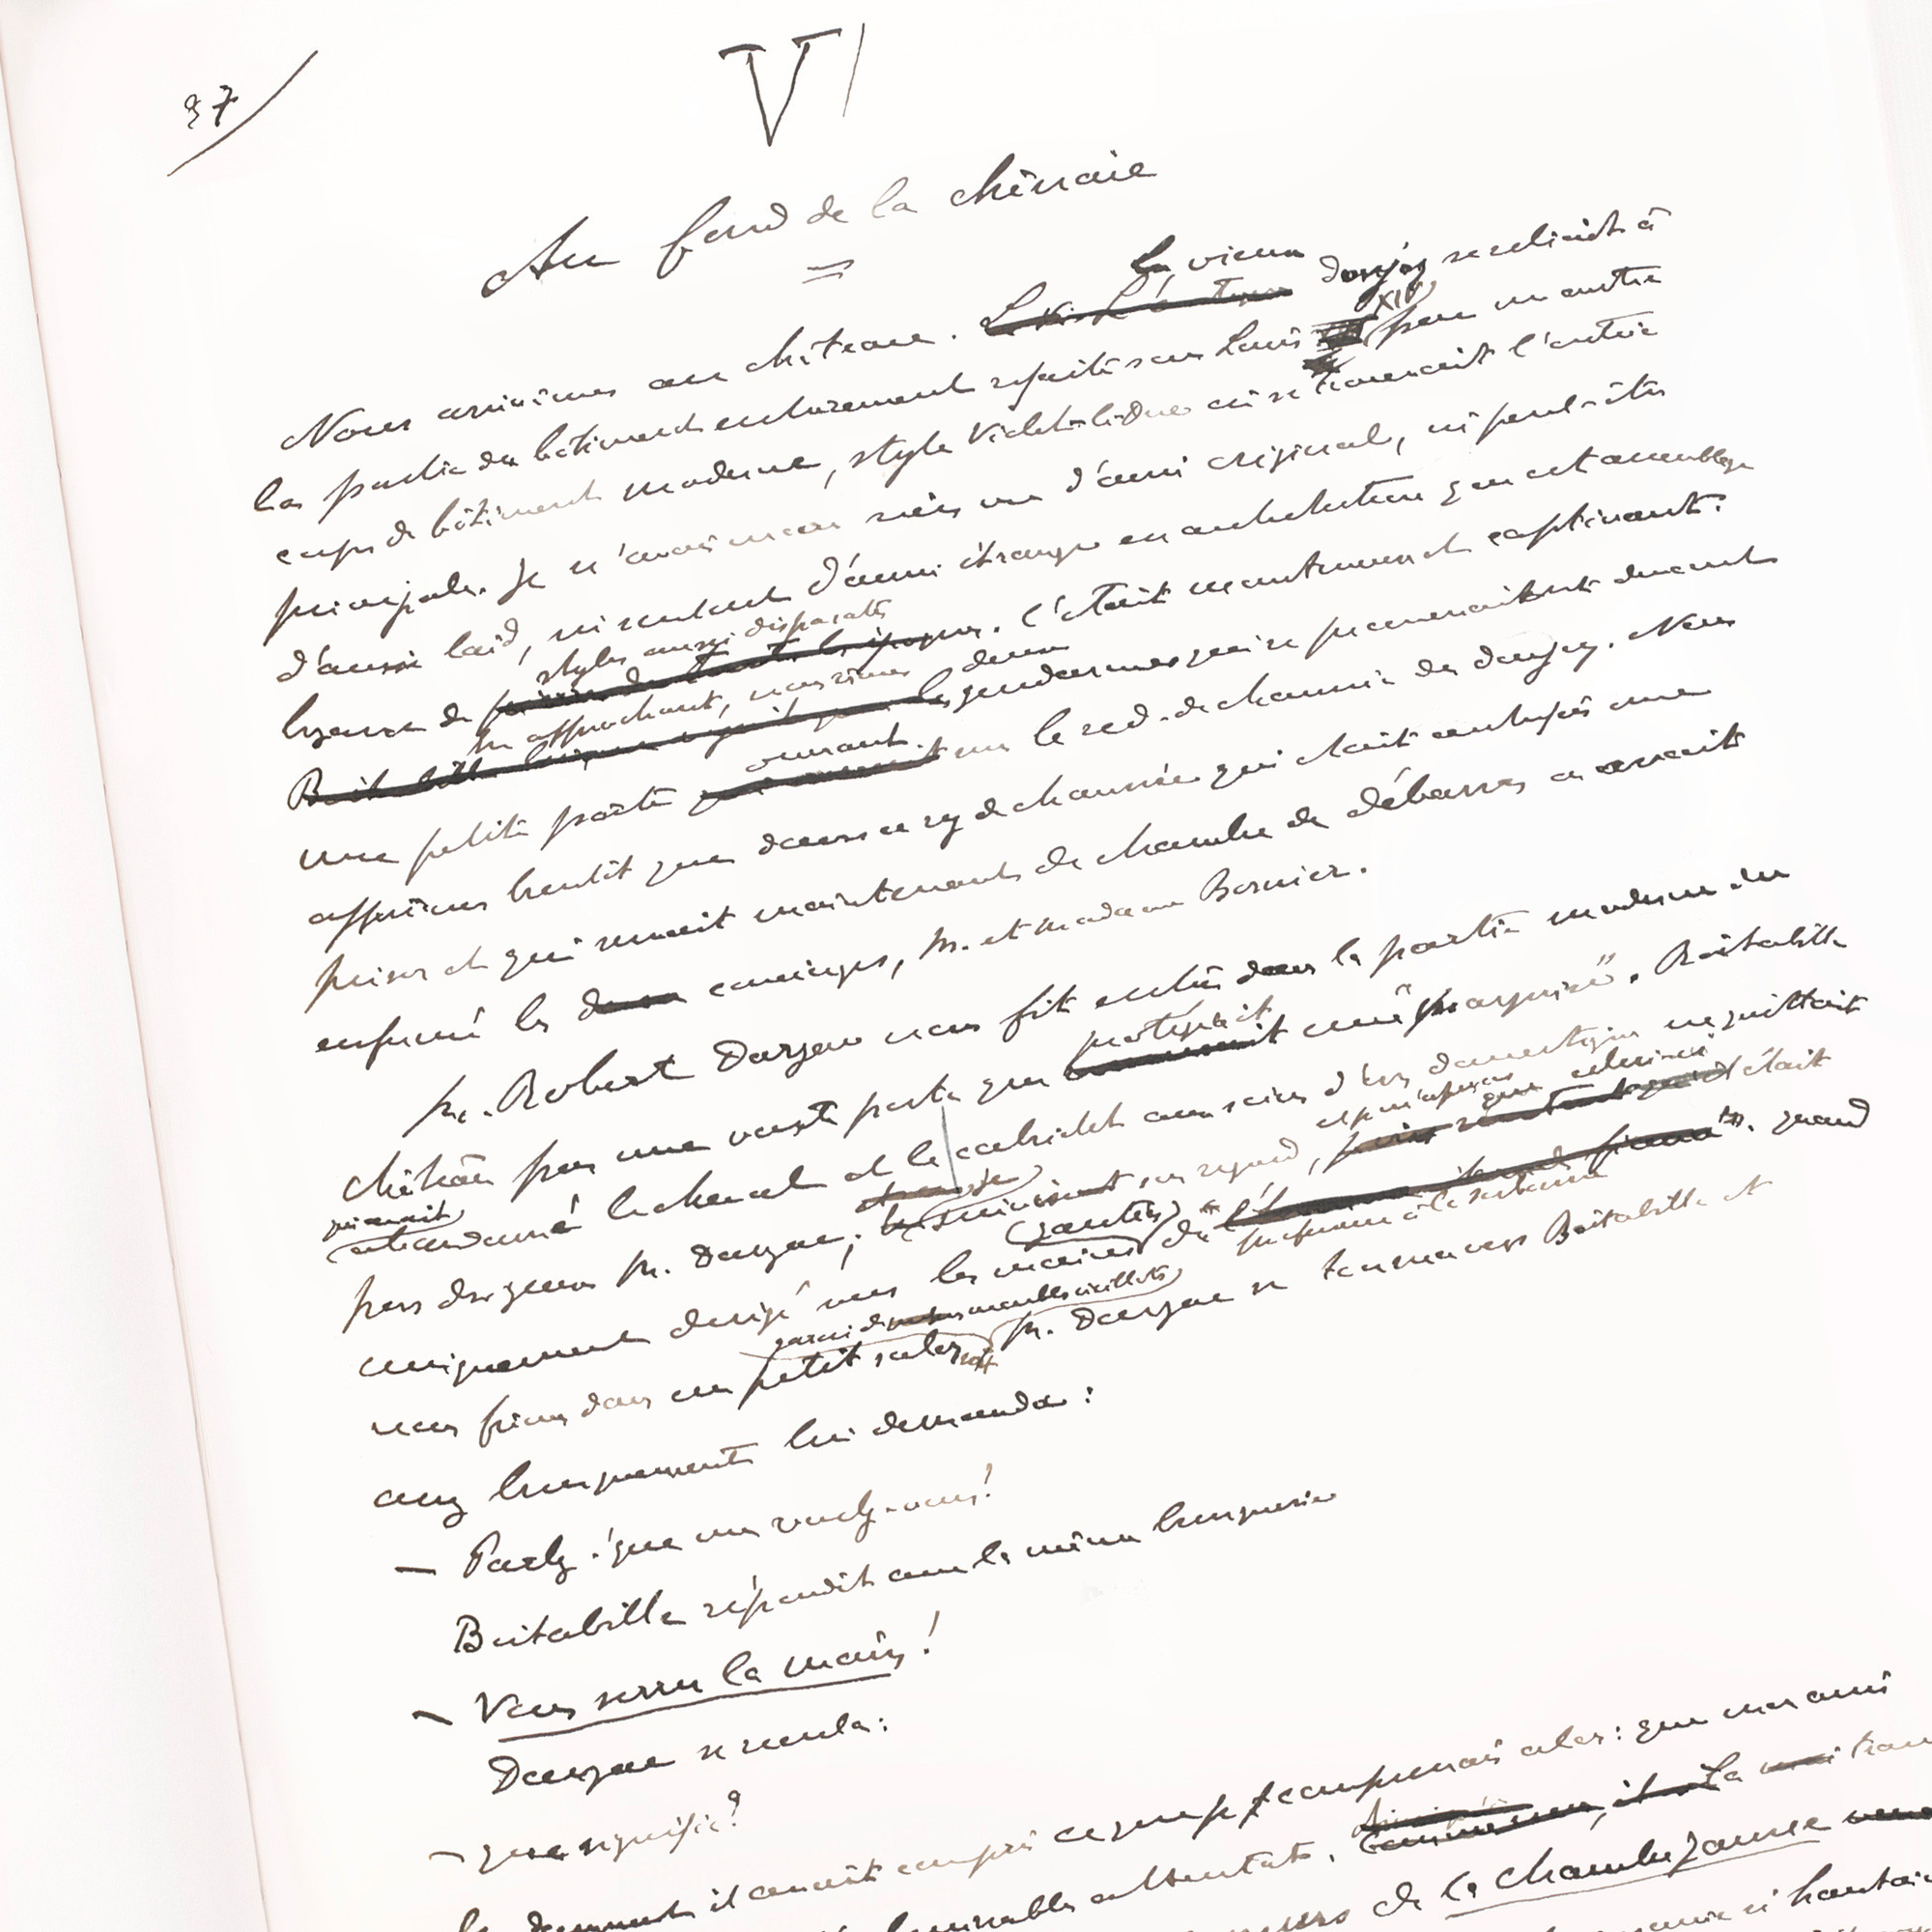 37
V
Au fond de la chênaie
Nous arrivâmes au château. Le vieux donjon se reliait à
la partie du bâtiment entièrement refaite sous Louis XIV par un autre
corps de bâtiment moderne, style Viollet-le-Duc où se trouvait l'entrée
principale. Je n'avais encore rien vu d'aussi original, ni peut-être
d'aussi laid, ni surtout d'aussi étrange en architecture que cet assemblage
bizarre de styles aussi disparates. C'était monstrueux et captivant.
En approchant, nous vîmes deux gendarmes qui se promenaient devant
une petite porte ouvrant sur le rez-de-chaussée du donjon. Nous
apprîmes bientôt que dans ce rez de chaussée qui était autrefois une
prison et qui servait maintenant de chambre de débarras on avait
enfermé les concierges, M. et Madame Bernier.
M. Robert Darzac nous fit entrer dans la partie moderne du
château par une vaste porte que protégeait une "marquise". Roitabille
qui avait abandonné le cheval et le cabriolet aux soins d'un domestique ne quittait
pas des yeux M. Darzac; je suivis son regard, et je m'aperçus que celui-ci était
uniquement dirigé vers les mains gantées du professeur à la Sorbonne. Quand
nous fûmes dans un petit salon garni de meubles vieillots M. Darzac se tourna vers Boitabille et
assez brusquement lui demanda:
— Parlez! que me voulez-vous!
Boitabille répondit avec la même brusquerie
— Vous serrer la main!
Darzac se recula:
— Que signifie?
il avait compris ce que je comprenais alors: que mon ami
abominable attentat. La trace
de la chambre jaune